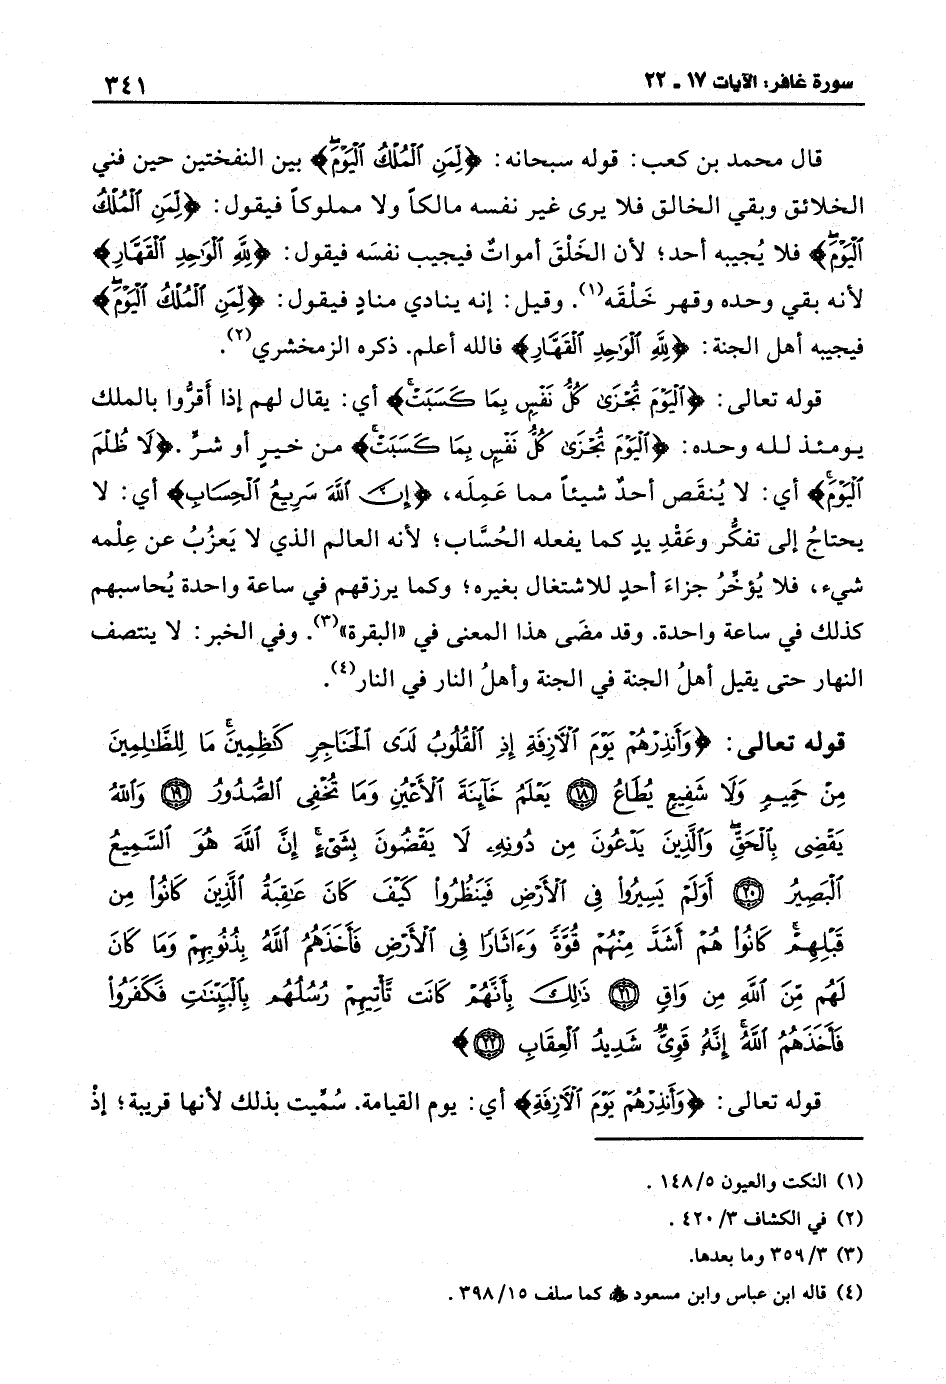 سورة غافر: الآيات ١٧ ـ ٢٢
٣٤١
قال محمد بن كعب: قوله سبحانه: ﴿لِّمَنِ ٱلْمُلْكُ ٱلْيَوْمَۖ﴾ بين النفختين حين فني
الخلائق وبقي الخالق فلا يرى غير نفسه مالكاً ولا مملوكاً فيقول: ﴿لِّمَنِ ٱلْمُلْكُ
ٱلْيَوْمَۖ﴾ فلا يُجيبه أحد؛ لأن الخَلْقَ أمواتٌ فيجيب نفسَه فيقول: ﴿لِلَّهِ ٱلْوَٰحِدِ ٱلْقَهَّارِ﴾
لأنه بقي وحده وقهر خَلْقَه(١). وقيل: إنه ينادي منادٍ فيقول: ﴿لِّمَنِ ٱلْمُلْكُ ٱلْيَوْمَۖ﴾
فيجيبه أهل الجنة: ﴿لِلَّهِ ٱلْوَٰحِدِ ٱلْقَهَّارِ﴾ فالله أعلم. ذكره الزمخشري(٢).
قوله تعالى: ﴿ٱلْيَوْمَ تُجْزَىٰ كُلُّ نَفْسٍۭ بِمَا كَسَبَتْۚ﴾ أي: يقال لهم إذا أقرُّوا بالملك
يومئذ لله وحده: ﴿ٱلْيَوْمَ تُجْزَىٰ كُلُّ نَفْسٍۭ بِمَا كَسَبَتْۚ﴾ من خيرٍ أو شرٍّ. ﴿لَا ظُلْمَ
ٱلْيَوْمَۚ﴾ أي: لا يُنقَص أحدٌ شيئاً مما عَمِلَه، ﴿إِنَّ ٱللَّهَ سَرِيعُ ٱلْحِسَابِ﴾ أي: لا
يحتاجُ إلى تفكُّر وعَقْدِ يدٍ كما يفعله الحُسَّاب؛ لأنه العالم الذي لا يَعزُبُ عن عِلْمه
شيء، فلا يُؤخِّرُ جزاءَ أحدٍ للاشتغال بغيره؛ وكما يرزقهم في ساعة واحدة يُحاسبهم
كذلك في ساعة واحدة. وقد مضَى هذا المعنى في «البقرة»(٣). وفي الخبر: لا ينتصف
النهار حتى يقيل أهلُ الجنة في الجنة وأهلُ النار في النار(٤).
قوله تعالى: ﴿وَأَنذِرْهُمْ يَوْمَ ٱلْأَزِفَةِ إِذِ ٱلْقُلُوبُ لَدَى ٱلْحَنَاجِرِ كَٰظِمِينَۚ مَا لِلظَّٰلِمِينَ
مِنْ حَمِيمٍ وَلَا شَفِيعٍ يُطَاعُ ١٨ يَعْلَمُ خَآئِنَةَ ٱلْأَعْيُنِ وَمَا تُخْفِى ٱلصُّدُورُ ١٩ وَٱللَّهُ
يَقْضِى بِٱلْحَقِّۖ وَٱلَّذِينَ يَدْعُونَ مِن دُونِهِۦ لَا يَقْضُونَ بِشَىْءٍۗ إِنَّ ٱللَّهَ هُوَ ٱلسَّمِيعُ
ٱلْبَصِيرُ ٢٠ أَوَلَمْ يَسِيرُوا۟ فِى ٱلْأَرْضِ فَيَنظُرُوا۟ كَيْفَ كَانَ عَٰقِبَةُ ٱلَّذِينَ كَانُوا۟ مِن
قَبْلِهِمْۚ كَانُوا۟ هُمْ أَشَدَّ مِنْهُمْ قُوَّةً وَءَاثَارًا فِى ٱلْأَرْضِ فَأَخَذَهُمُ ٱللَّهُ بِذُنُوبِهِمْ وَمَا كَانَ
لَهُم مِّنَ ٱللَّهِ مِن وَاقٍ ٢١ ذَٰلِكَ بِأَنَّهُمْ كَانَت تَّأْتِيهِمْ رُسُلُهُم بِٱلْبَيِّنَٰتِ فَكَفَرُوا۟
فَأَخَذَهُمُ ٱللَّهُۚ إِنَّهُۥ قَوِىٌّ شَدِيدُ ٱلْعِقَابِ ٢٢﴾
قوله تعالى: ﴿وَأَنذِرْهُمْ يَوْمَ ٱلْأَزِفَةِ﴾ أي: يوم القيامة. سُمِّيت بذلك لأنها قريبة؛ إذْ
(١) النكت والعيون ١٤٨/٥ .
(٢) في الكشاف ٤٢٠/٣ .
(٣) ٣٥٩/٣ وما بعدها.
(٤) قاله ابن عباس وابن مسعود ﷺ كما سلف ٣٩٨/١٥ .